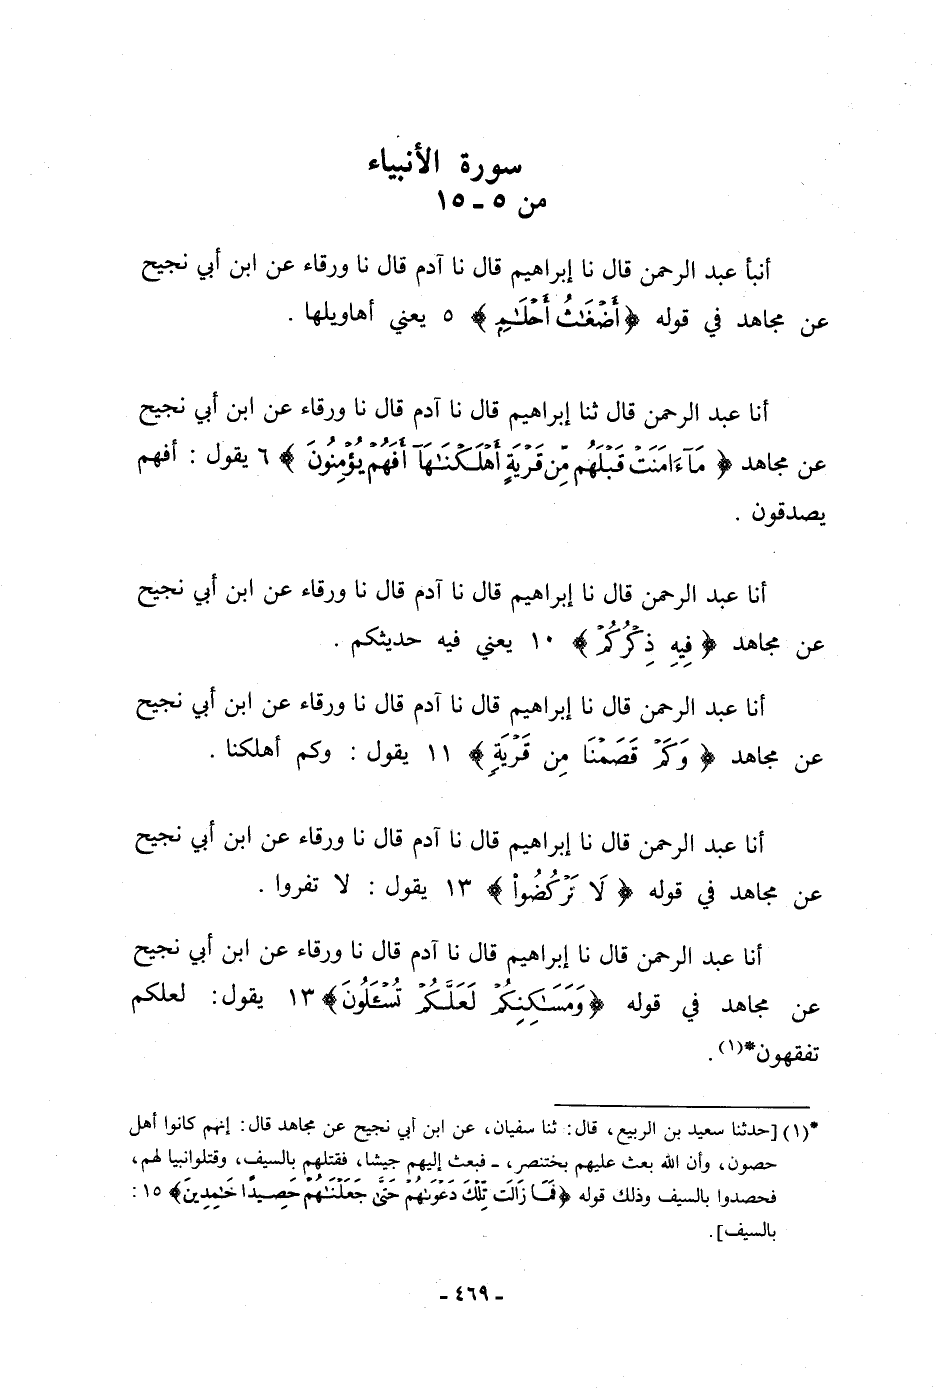 سورة الأنبياء
من ٥ ـ ١٥
أنبأ عبد الرحمن قال نا إبراهيم قال نا آدم قال نا ورقاء عن ابن أبي نجيح
عن مجاهد في قوله ﴿أَضْغَٰثُ أَحْلَٰمٍ﴾ ٥ يعني أهاويلها .
أنا عبد الرحمن قال ثنا إبراهيم قال نا آدم قال نا ورقاء عن ابن أبي نجيح
عن مجاهد ﴿ مَآءَامَنَتْ قَبْلَهُم مِّن قَرْيَةٍ أَهْلَكْنَٰهَآ أَفَهُمْ يُؤْمِنُونَ ﴾ ٦ يقول : أفهم
يصدقون .
أنا عبد الرحمن قال نا إبراهيم قال نا آدم قال نا ورقاء عن ابن أبي نجيح
عن مجاهد ﴿ فِيهِ ذِكْرُكُمْ ﴾ ١٠ يعني فيه حديثكم .
أنا عبد الرحمن قال نا إبراهيم قال نا آدم قال نا ورقاء عن ابن أبي نجيح
عن مجاهد ﴿ وَكَمْ قَصَمْنَا مِن قَرْيَةٍ ﴾ ١١ يقول : وكم أهلكنا .
أنا عبد الرحمن قال نا إبراهيم قال نا آدم قال نا ورقاء عن ابن أبي نجيح
عن مجاهد في قوله ﴿ لَا تَرْكُضُواْ ﴾ ١٣ يقول : لا تفروا .
أنا عبد الرحمن قال نا إبراهيم قال نا آدم قال نا ورقاء عن ابن أبي نجيح
عن مجاهد في قوله ﴿وَمَسَٰكِنِكُمْ لَعَلَّكُمْ تُسْـَٔلُونَ﴾ ١٣ يقول: لعلكم
تفقهون*(١).
*(١) [حدثنا سعيد بن الربيع، قال: ثنا سفيان، عن ابن أبي نجيح عن مجاهد قال: إنهم كانوا أهل
حصون، وأن الله بعث عليهم بختنصر، ـ فبعث إليهم جيشا، فقتلهم بالسيف، وقتلوانبيا لهم،
فحصدوا بالسيف وذلك قوله ﴿فَمَا زَالَت تِّلْكَ دَعْوَىٰهُمْ حَتَّىٰ جَعَلْنَٰهُمْ حَصِيدًا خَٰمِدِينَ﴾ ١٥ :
بالسيف].
ـ ٤٦٩ ـ